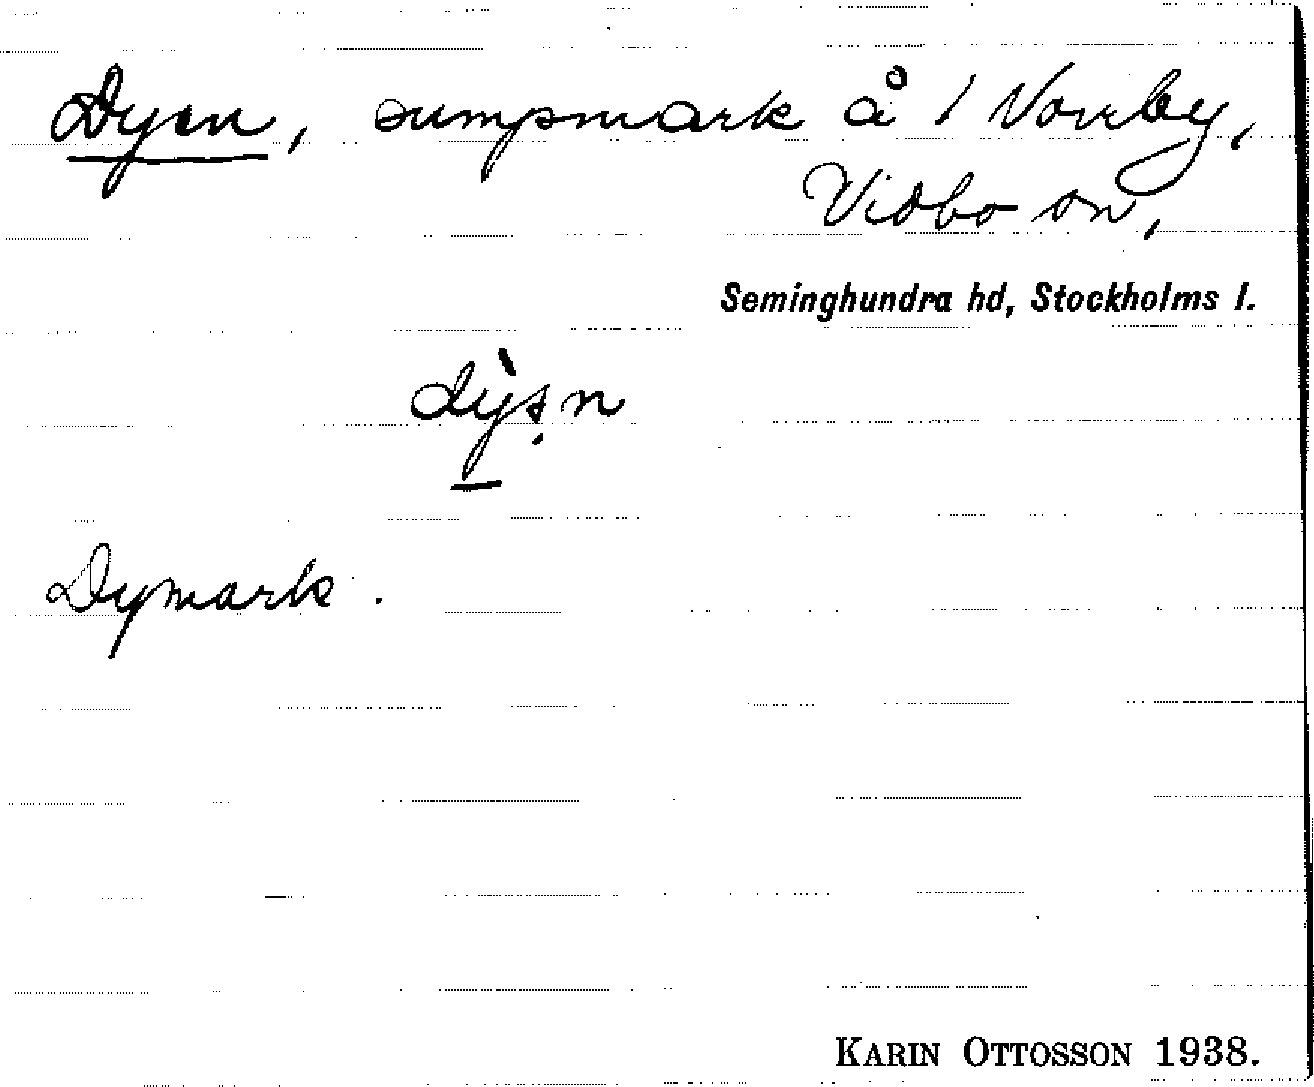 Dyen, sumpmark å 1 Norrby,
Vidbo sn,
Seminghundra hd, Stockholms l.
Dymark.
KARIN OTTOSSON 1938.